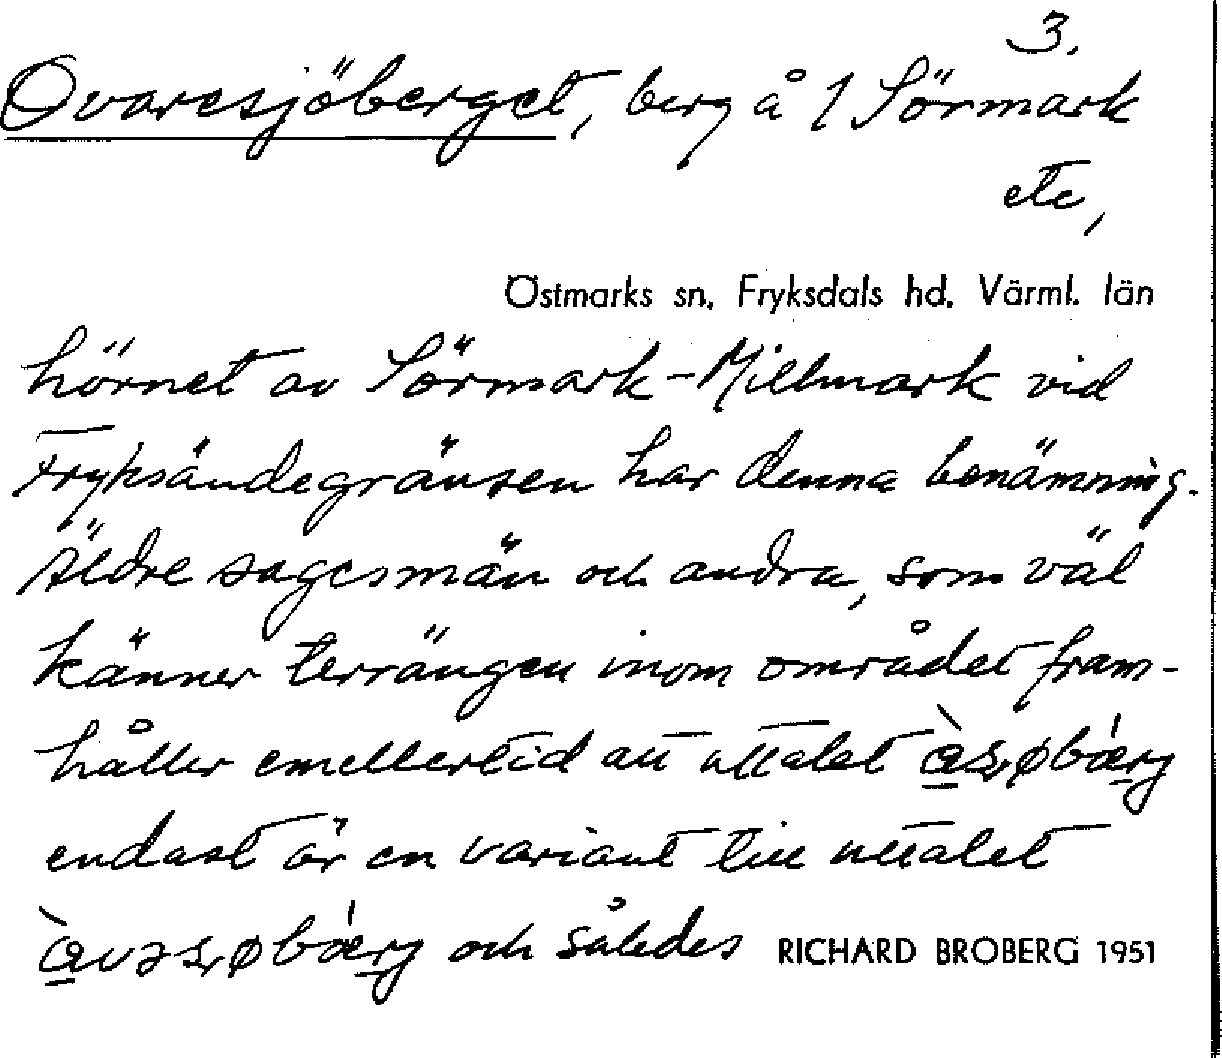 3.
Ovaresjöberget, berg å 1 Sörmark
etc,
Östmarks sn, Fryksdals hd. Värml. län
hörnet av Sörmark-Millmark vid
Fryksändegränsen har denna benämning.
Äldre sagesmän och andra, som väl
känner terrängen inom området fram-
håller emellertid att uttalet
endast är en variant till uttalet
och således RICHARD BROBERG 1951